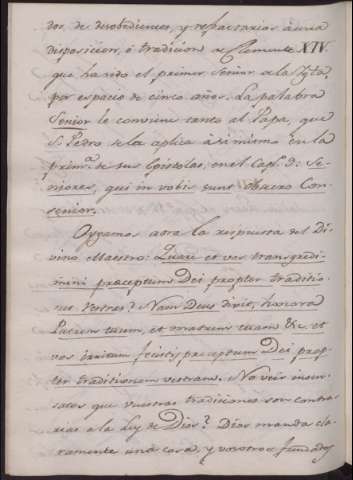 dos de desobedientes, y refractarios à una
disposicion, ó tradicion de Clemente XIV.
que ha sido el primer Senior de la Iglª.
por espacio de cinco años. La palabra
Senior le conviene tanto al Papa, que
S. Pedro se la aplica à sí mismo en la
prim.ª de sus Epistolas, en el Cap. 5: Se-
niores, qui in vobis sunt obsecro Con-
senior.
Oygamos aora la respuesta del Di-
vino Maestro: Quare et vos transgredi-
mini præceptum Dei propter traditio-
nes vestras? Nam Deus dixit, honora
Patrem tuum, et matrem tuam &c. et
vos irritum fecistis præceptum Dei prop-
ter traditionem vestram. No veis insen-
satos que vuestras tradiciones son contra-
rias a la Ley de Dios? Dios manda cla-
ramente una cosa, y vosotros fundados